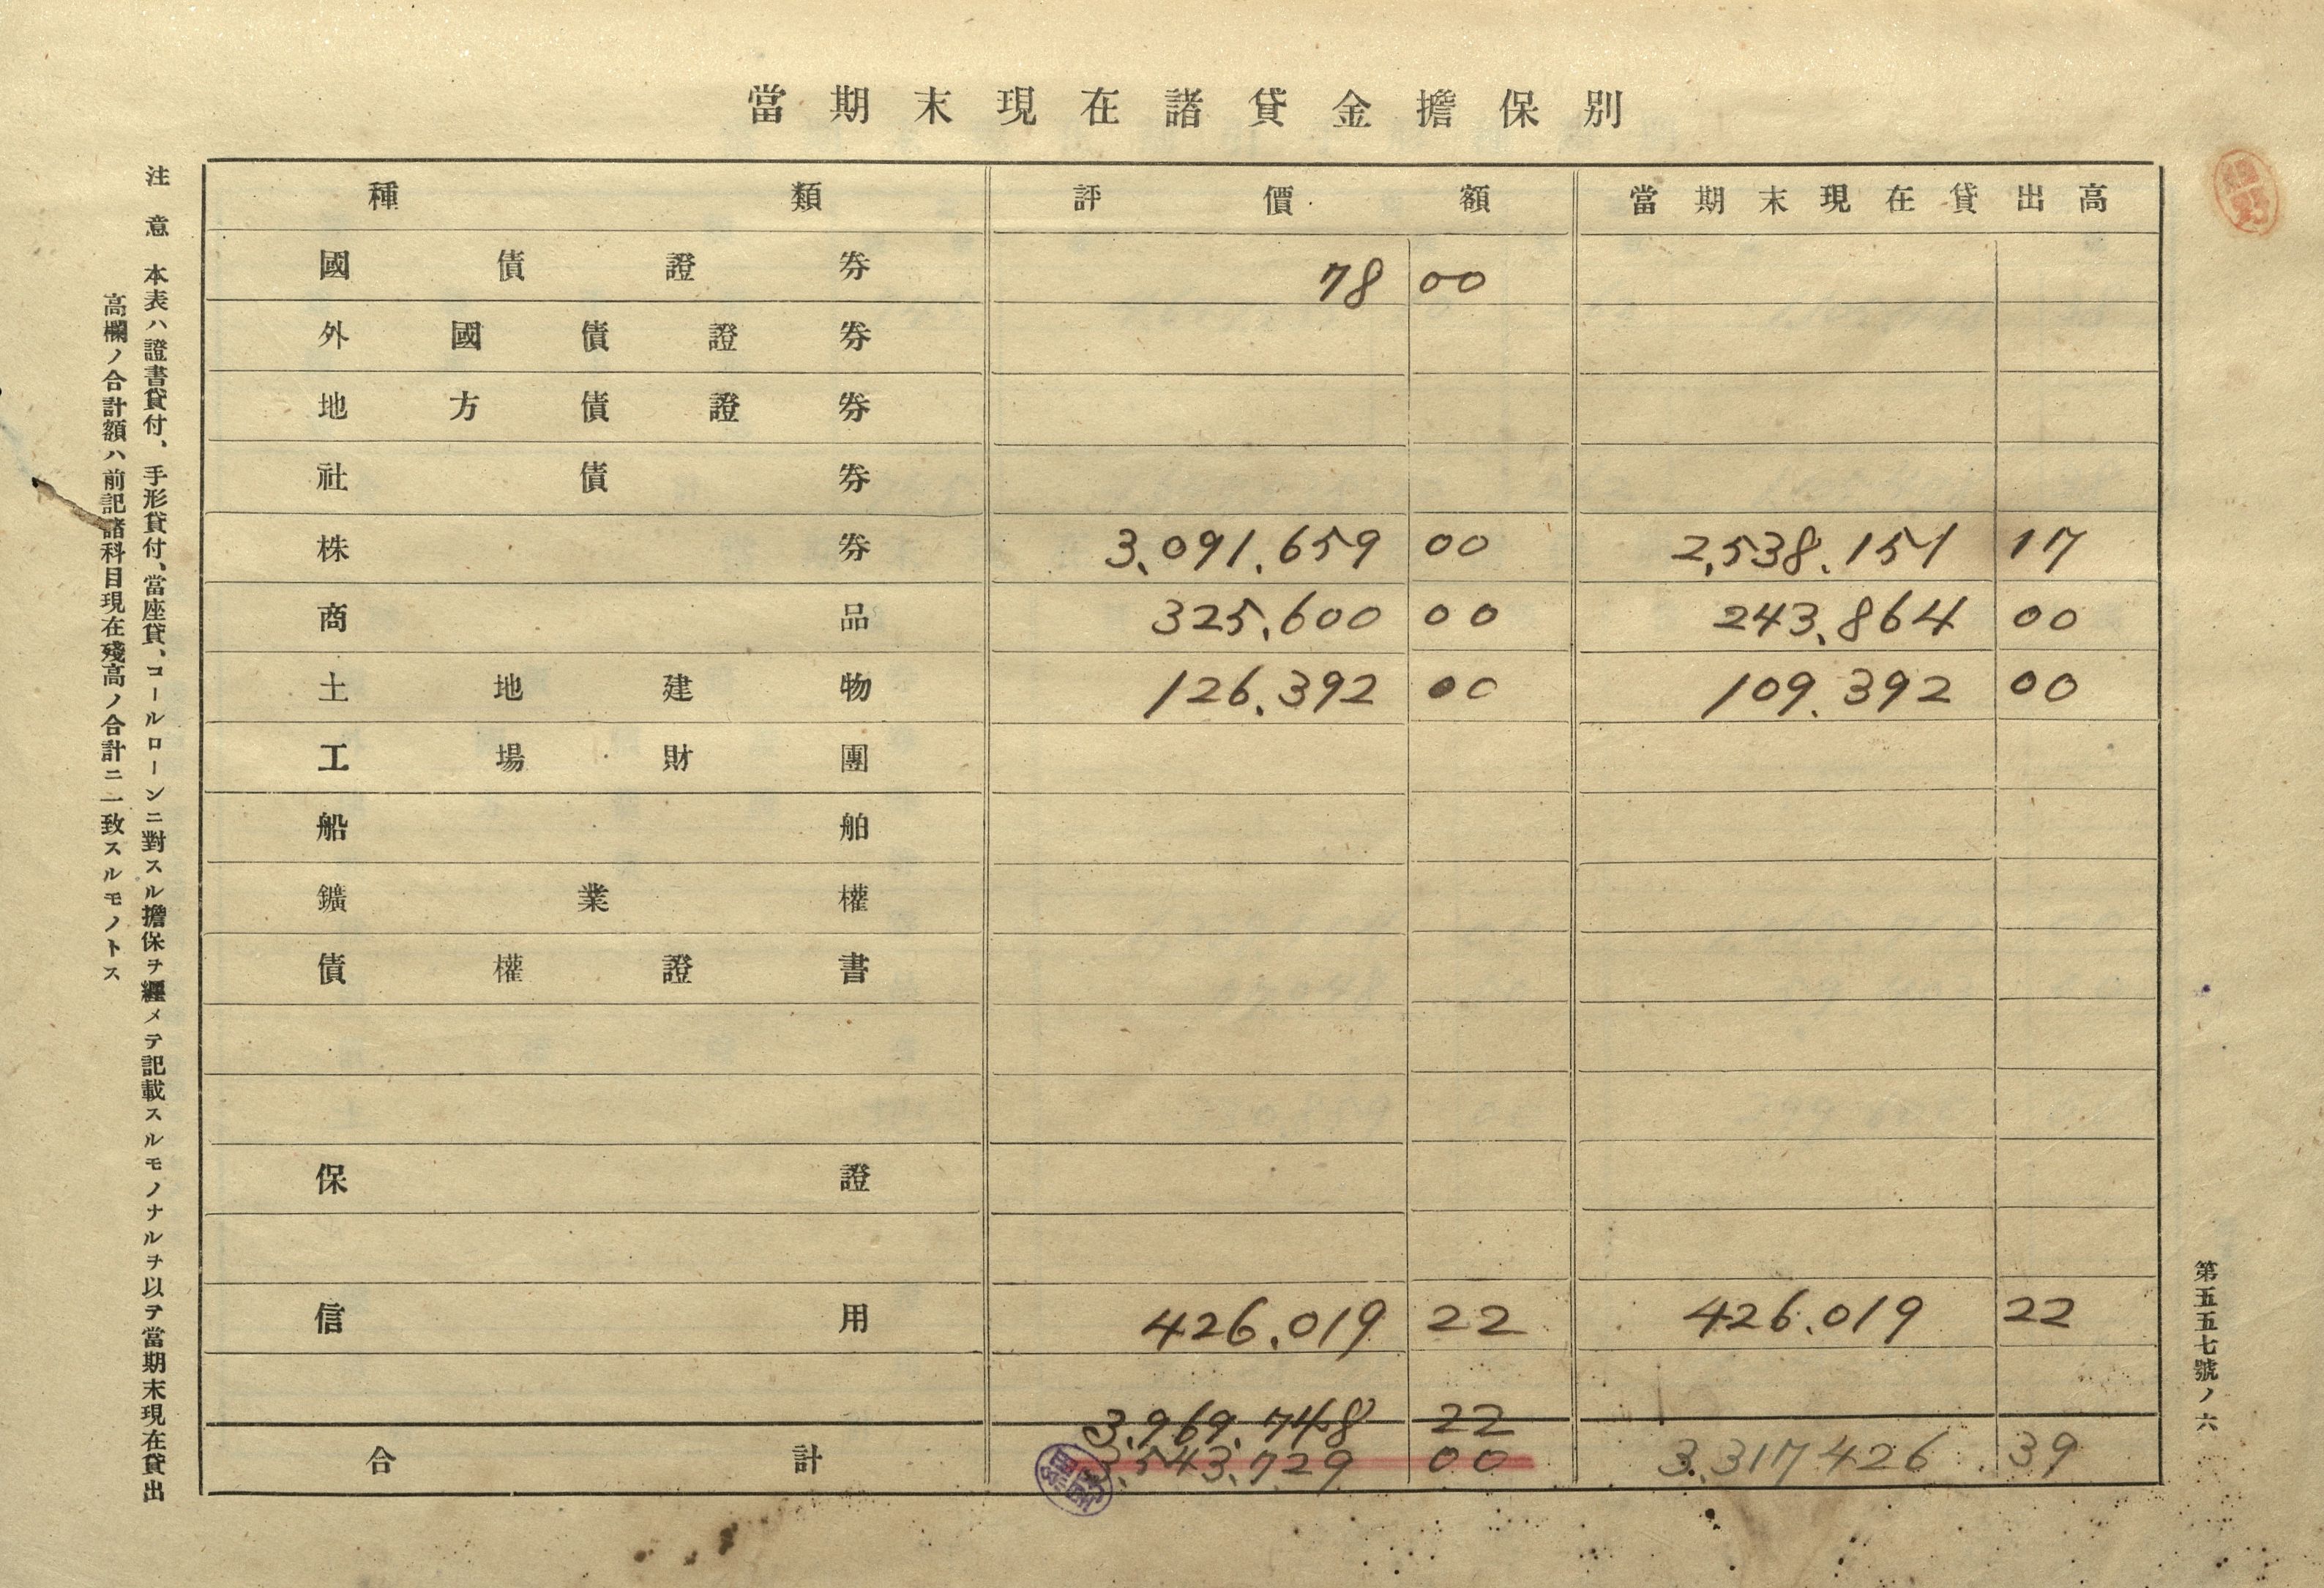 當期末現在諸貸金擔保別
種類 評價額 當期末現在貸出高
國債證券 78 00
外國債證券
地方債證券
社債券
株券 3,091,659 00 2,538,151 17
商品 325,600 00 243,864 00
土地建物 126,392 00 109,392 00
工場財團
船舶
鑛業權
債權證書
保證
信用 426,019 22 426,019 22
3,969,748 22
合計 3,543,729 00 3,317,426 39
注意 本表ハ證書貸付、手形貸付、當座貸、コールローンニ對スル擔保ヲ纒メテ記載スルモノナルヲ以テ當期末現在貸出
高欄ノ合計額ハ前記諸科目現在殘高ノ合計ニ一致スルモノトス
第五五七號ノ六